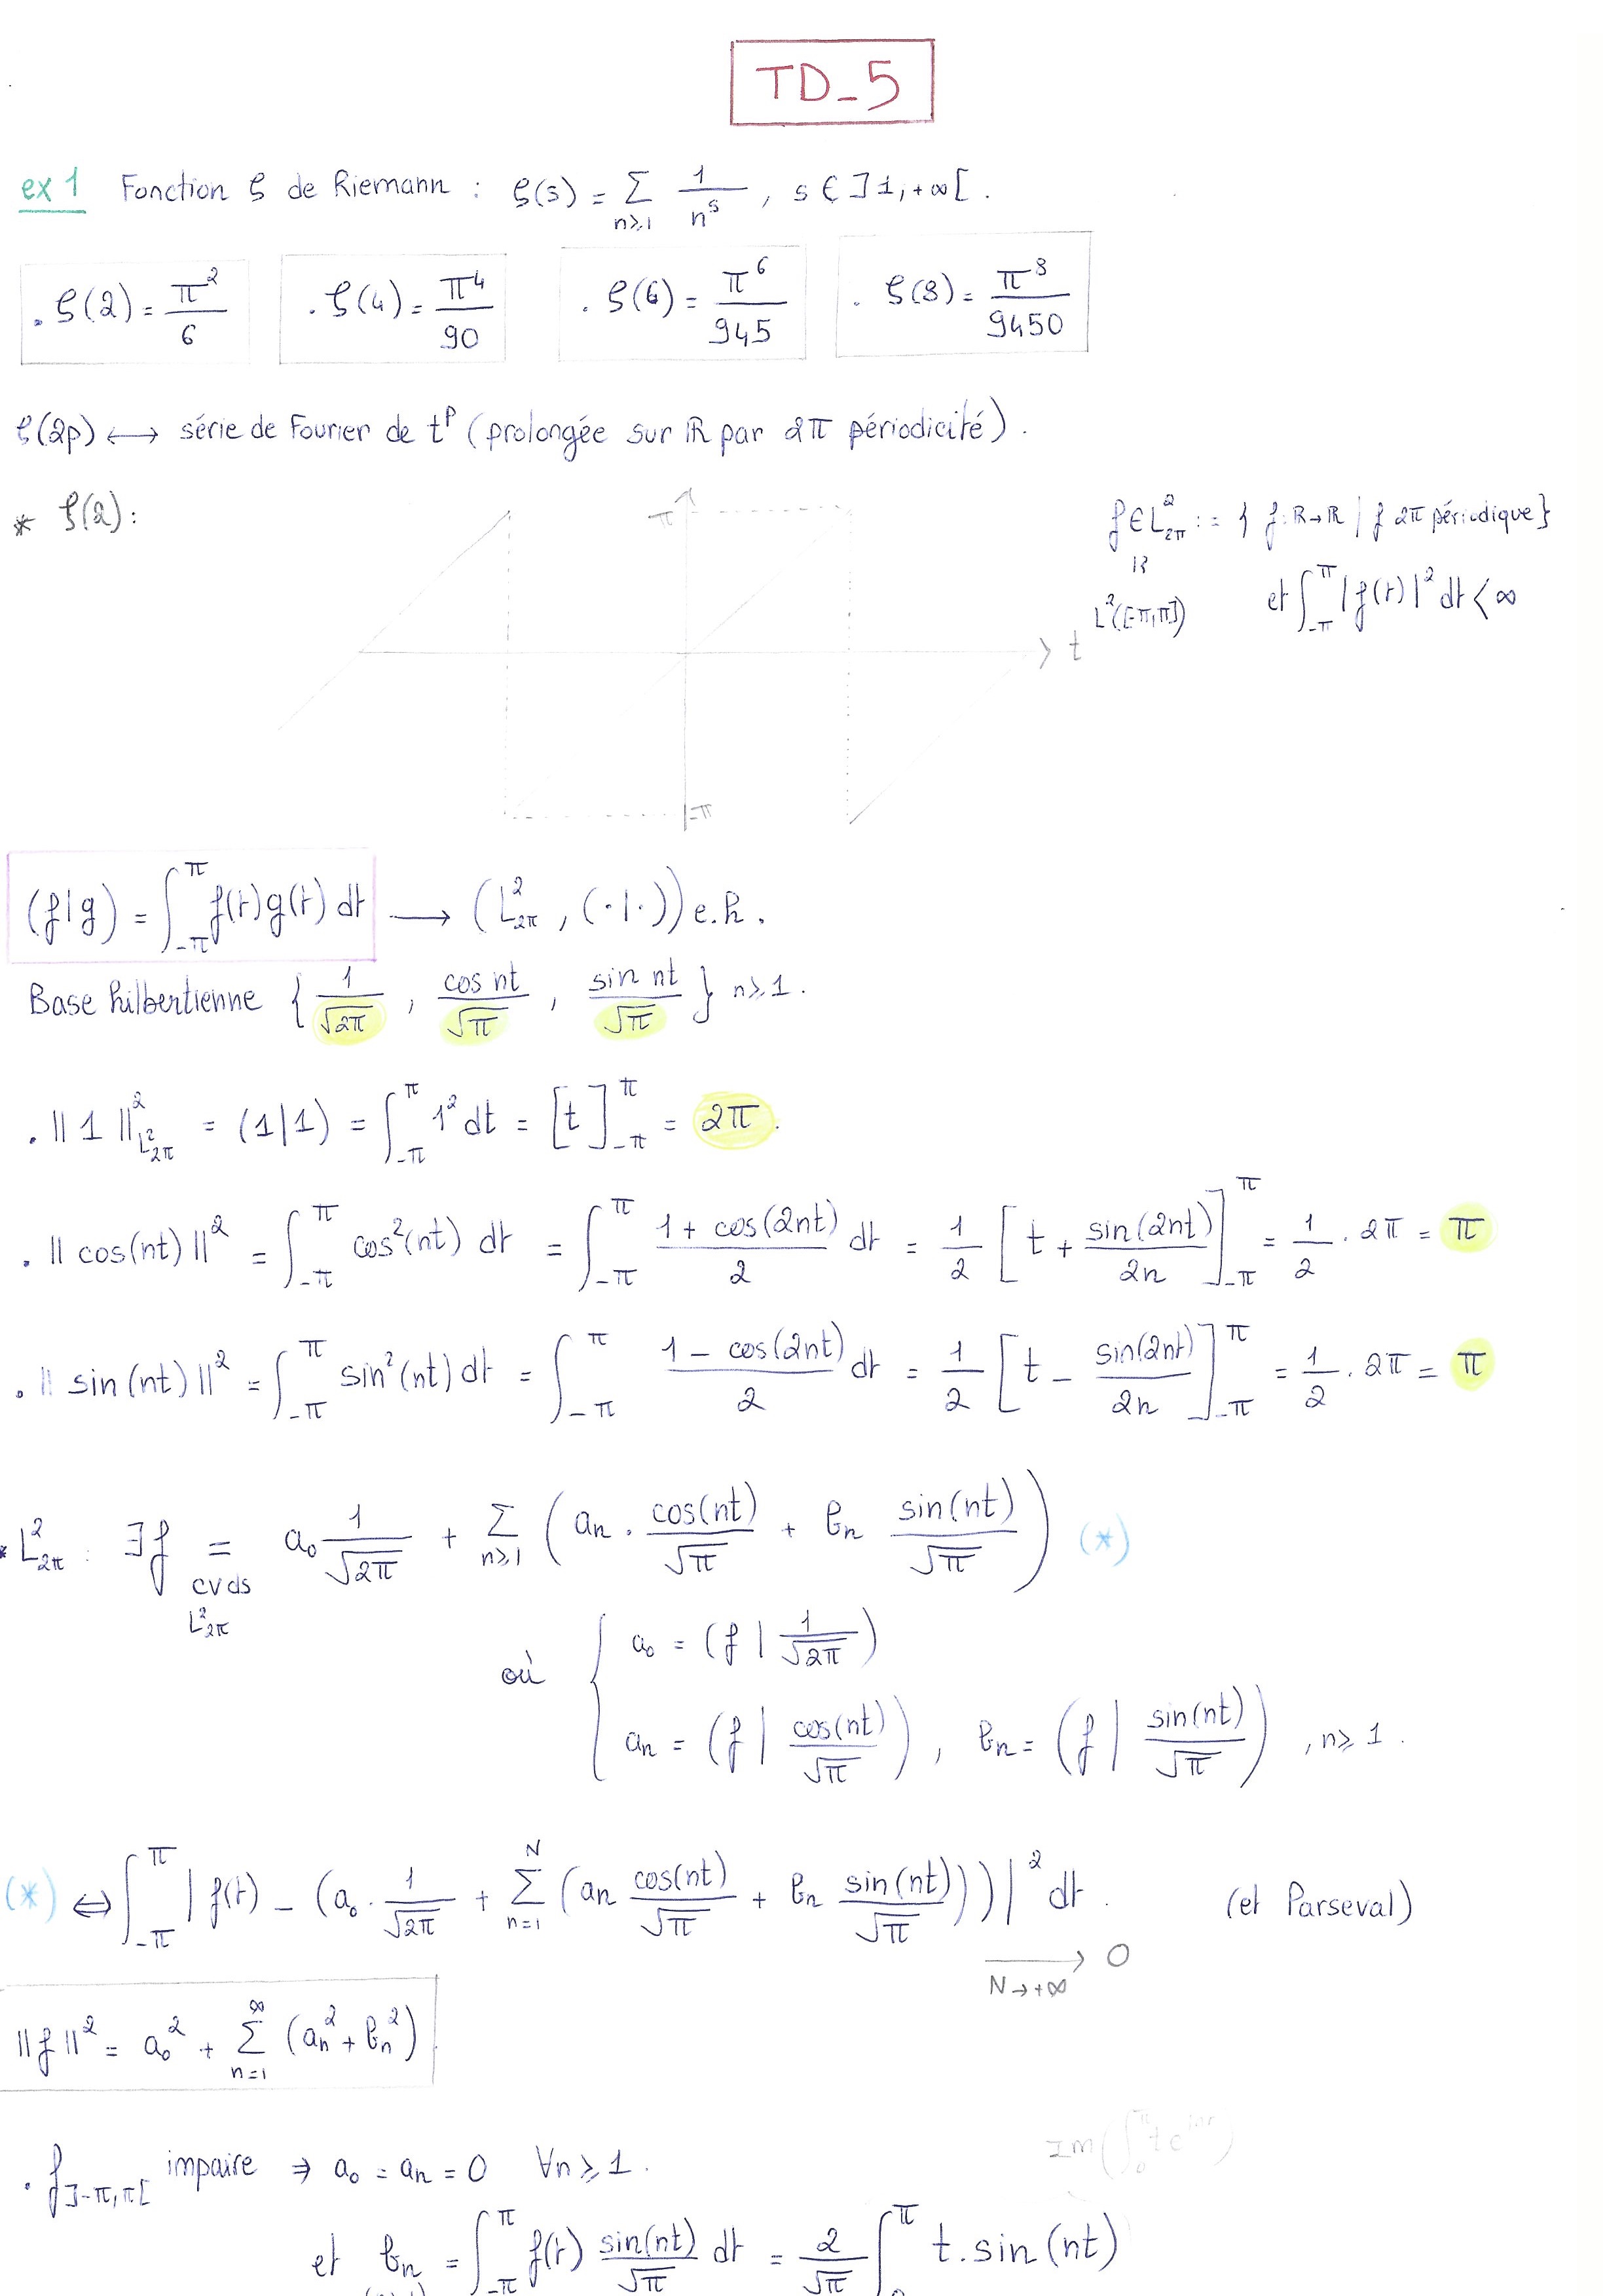 TD_5
ex 1 Fonction ζ de Riemann : ζ(s) = ∑_{n≥1} 1/n^s , s ∈ ]1,+∞[.
. ζ(2) = π²/6 . ζ(4) = π⁴/90 . ζ(6) = π⁶/945 . ζ(8) = π⁸/9450
ζ(2p) ⟷ série de Fourier de t^p (prolongée sur ℝ par 2π périodicité).
* ζ(2):
π
t
-π
f ∈ L²_{2π} := { f: ℝ→ℝ / f 2π périodique}
L²([-π,π]) et ∫_{-π}^{π} |f(t)|² dt < ∞
(f|g) = ∫_{-π}^{π} f(t)g(t) dt ⟶ (L²_{2π}, (·|·)) e.h.
Base hilbertienne { 1/√(2π) , cos nt/√π , sin nt/√π } n≥1.
. ||1||²_{L²_{2π}} = (1|1) = ∫_{-π}^{π} 1² dt = [t]_{-π}^{π} = 2π.
. ||cos(nt)||² = ∫_{-π}^{π} cos²(nt) dt = ∫_{-π}^{π} (1 + cos(2nt))/2 dt = 1/2 [t + sin(2nt)/2n]_{-π}^{π} = 1/2 . 2π = π
. ||sin(nt)||² = ∫_{-π}^{π} sin²(nt) dt = ∫_{-π}^{π} (1 - cos(2nt))/2 dt = 1/2 [t - sin(2nt)/2n]_{-π}^{π} = 1/2 . 2π = π
* L²_{2π} : ∃f = a₀ 1/√(2π) + ∑_{n≥1} (a_n . cos(nt)/√π + b_n sin(nt)/√π) (*)
cv ds
L²_{2π}
où { a₀ = (f | 1/√(2π))
a_n = (f | cos(nt)/√π) , b_n = (f | sin(nt)/√π) , n≥1.
(*) ⇔ ∫_{-π}^{π} |f(t) - (a₀ . 1/√(2π) + ∑_{n=1}^{N} (a_n cos(nt)/√π + b_n sin(nt)/√π))|² dt. (et Parseval)
⟶_{N→+∞} 0
||f||² = a₀² + ∑_{n=1}^{∞} (a_n² + b_n²)
. f_{]-π,π[} impaire ⇒ a₀ = a_n = 0 ∀n≥1.
et b_n = ∫_{-π}^{π} f(t) sin(nt)/√π dt = 2/√π ∫_{0}^{π} t.sin(nt)